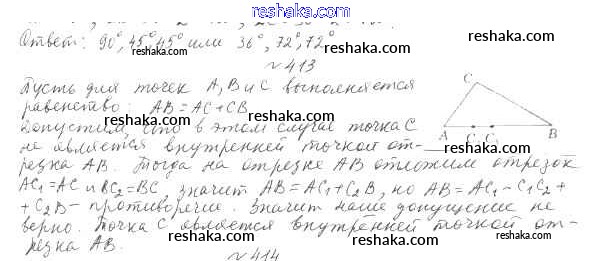 reshaka.com
Ответ: 90°, 45°, 45° или 36°, 72°, 72°
reshaka.com reshaka.com
№413
Пусть для точек A, B и C выполняется
равенство: AB = AC + CB
reshaka.com reshaka.com
Допустим, что в этом случае точка C
не является внутренней точкой от-
резка AB. Тогда на отрезке AB отложим отрезок
AC₁ = AC и BC₂ = BC, значит AB = AC₁ + C₂B, но AB = AC₁ - C₁C₂ +
+ C₂B - противоречие. Значит наше допущение не
верно. Точка C является внутренней точкой от-
резка AB.
C
A C₂ C₁ B
reshaka.com reshaka.com
reshaka.com reshaka.com
reshaka.com
№414